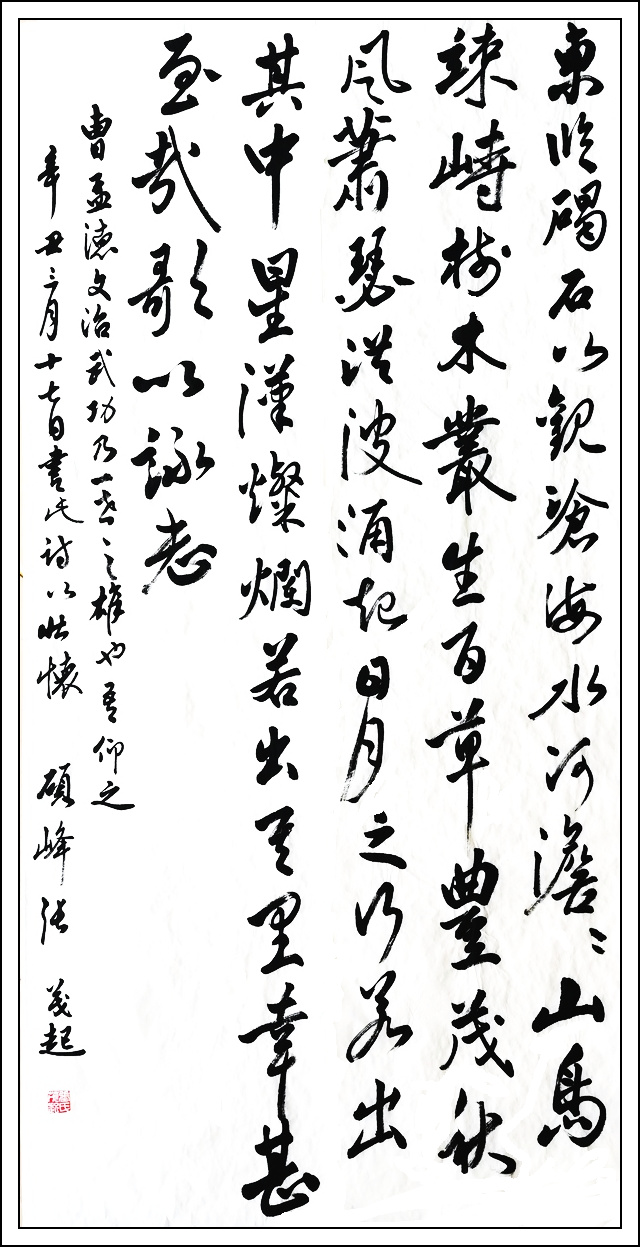 東臨碣石以觀滄海水何澹〻山島
竦峙樹木叢生百草豐茂秋
風蕭瑟洪波涌起日月之行若出
其中星漢燦爛若出其里幸甚
至哉歌以詠志
曹孟德文治武功乃一世之雄也吾仰之
辛丑三月十七日書此詩以壯懷 碩峰張 起